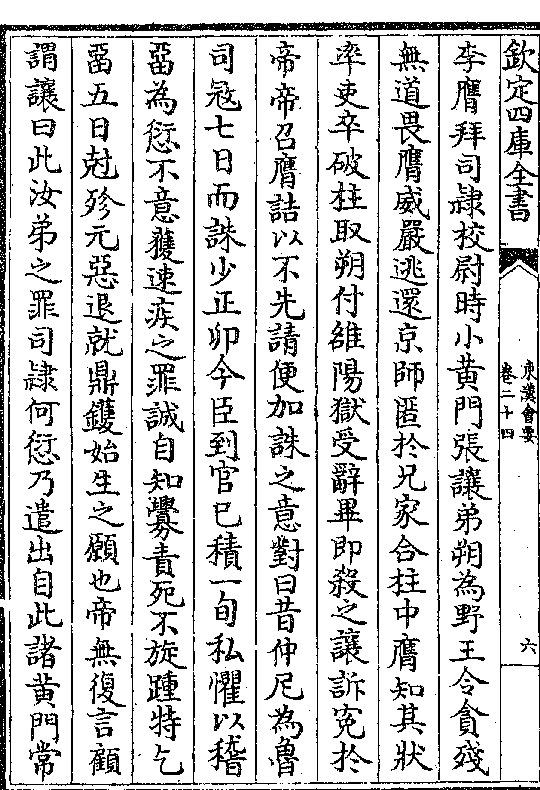 欽定四庫全書
東漢會要
卷二十四
六
李膺拜司隸校尉時小黃門張讓弟朔為野王令貪殘
無道畏膺威嚴逃還京師匿於兄家合柱中膺知其狀
率吏卒破柱取朔付雒陽獄受辭畢即殺之讓訴冤於
帝帝召膺詰以不先請便加誅之意對曰昔仲尼為魯
司冦七日而誅少正卯今臣到官已積一旬私懼以稽
畱為愆不意獲速疾之罪誠自知釁責死不旋踵特乞
畱五日尅殄元惡退就鼎鑊始生之願也帝無復言顧
謂讓曰此汝弟之罪司隸何愆乃遣出自此諸黃門常